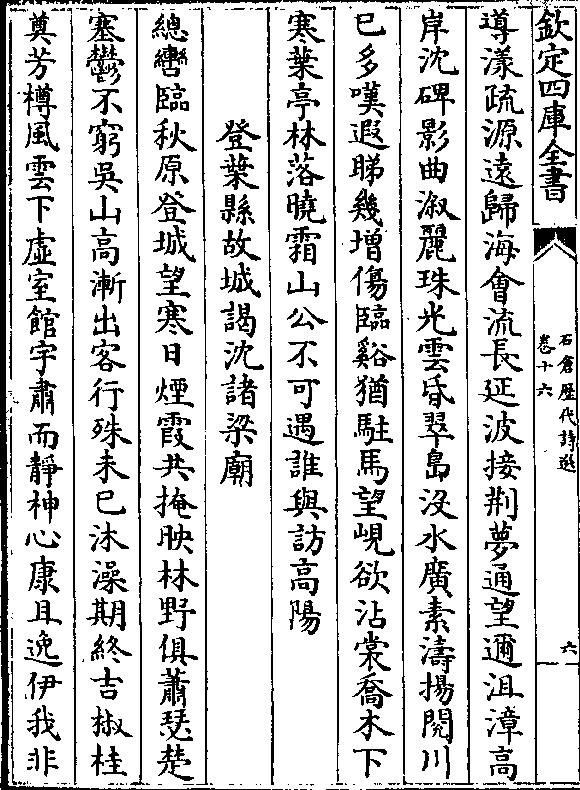 欽定四庫全書
石倉歷代詩選
卷十六
六
導漾疏源遠歸海會流長延波接荆夢通望邇沮漳高
岸沈碑影曲溆麗珠光雲昏翠島沒水廣素濤揚閱川
已多嘆遐睇幾增傷臨谿猶駐馬望峴欲沾裳喬木下
寒葉亭林落曉霜山公不可遇誰與訪高陽
登葉縣故城謁沈諸梁廟
總轡臨秋原登城望寒日煙霞共掩映林野俱蕭瑟楚
塞鬱不窮吳山高漸出客行殊未已沐澡期終吉椒桂
奠芳樽風雲下虛室館宇肅而靜神心康且逸伊我非